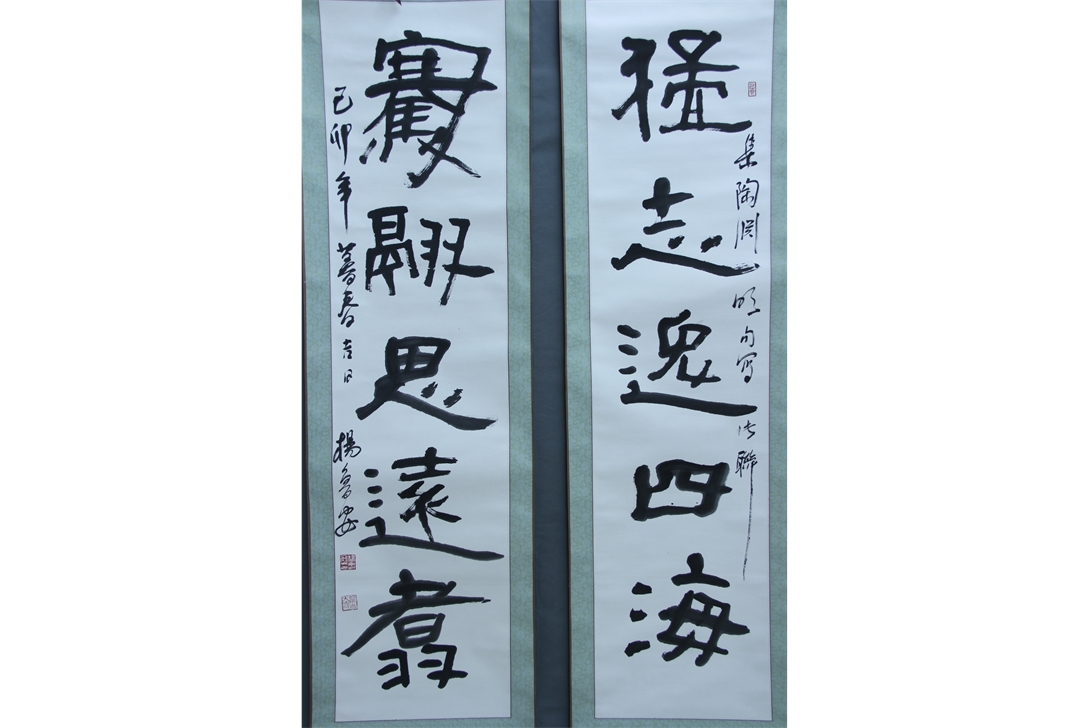 集陶渊明句写此聯
猛志逸四海
騫翮思遠翥
己卯年暮春吉日 楊魯安